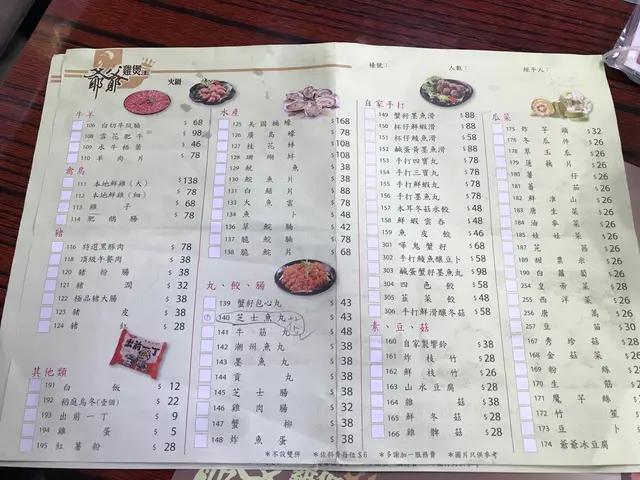 爺爺雞煲王
火鍋
檯號：
人數：
經手人：
牛羊
106 白切牛坑腩 $68
108 雪花肥牛 $98
109 水牛栢葉 $46
110 羊肉片 $78
禽鳥
111 本地鮮雞（大） $138
112 本地鮮雞（細） $78
113 雞子 $68
114 肥鵝腸 $78
豬
116 特選黑豚肉 $78
118 頂級午餐肉 $38
120 豬粉腸 $38
121 豬潤 $32
122 極品豬大腸 $38
123 豬皮 $38
124 豬紅 $28
其他類
191 白飯 $12
192 稻庭烏冬(壹個) $22
193 出前一丁 $9
194 雞蛋 $5
195 紅薯粉 $28
水產
125 美國桶蠔 $168
126 廣島蠔 $78
127 桂花蚌 $108
128 珊瑚蚌 $108
129 魷魚 $38
130 鯇魚片 $38
131 白鱔片 $88
133 大魚雲 $78
134 魚卜 $48
136 草鯇腩 $42
137 脆鯇腩 $78
138 脆鯇腸 $68
丸、餃、腸
139 蟹籽包心丸 $43
140 芝士魚丸 $43
141 牛筋丸 $48
142 潮州魚丸 $38
143 墨魚丸 $38
144 貢丸 $38
145 芝士腸 $38
146 雞肉腸 $32
147 蟹柳 $38
148 炸魚蛋 $38
自家手打
149 蟹籽墨魚滑 $88
150 杯仔鮮蝦滑 $88
151 杯仔鯪魚滑 $58
152 鹹蛋黃墨魚滑 $88
153 手打四寶丸 $78
154 手打三寶丸 $78
155 手打鮮蝦丸 $78
156 手打墨魚丸 $78
157 木耳冬菇水餃 $48
158 鮮蝦雲吞 $48
159 魚皮餃 $46
301 嗶鬼蟹籽 $68
302 手打鯪魚釀豆卜 $58
303 鹹蛋蟹籽墨魚丸 $98
304 四色餃 $58
305 韮菜餃 $48
306 手打鮮滑釀冬菇 $58
素、豆、菇
160 自家製響鈴 $38
161 炸枝竹 $28
162 鮮枝竹 $26
163 山水豆腐 $28
164 雞菇 $38
165 鮮冬菇 $28
166 雞髀菇 $28
瓜菜
175 炸芋頭 $32
176 冬瓜件 $26
178 翠玉瓜 $26
179 蓮藕 $26
180 蕃茄仔 $26
181 蕃茜 $26
182 鮮淮山 $26
183 唐生菜 $26
185 娃娃菜 $26
187 芫茜 $26
189 甜粟米 $26
190 白蘿蔔 $26
254 皇帝菜 $28
255 西洋菜 $26
256 菠菜 $26
257 豆苗 $30
167 秀珍菇 $28
168 金菇菜 $28
169 粉絲 $28
170 生筋 $28
171 魔芋絲 $28
172 竹笙
173 豆卜
174 爺爺冰豆腐
＊不設雙併 ＊佐料費每位$6 ＊多謝加一服務費 ＊圖片只供參考